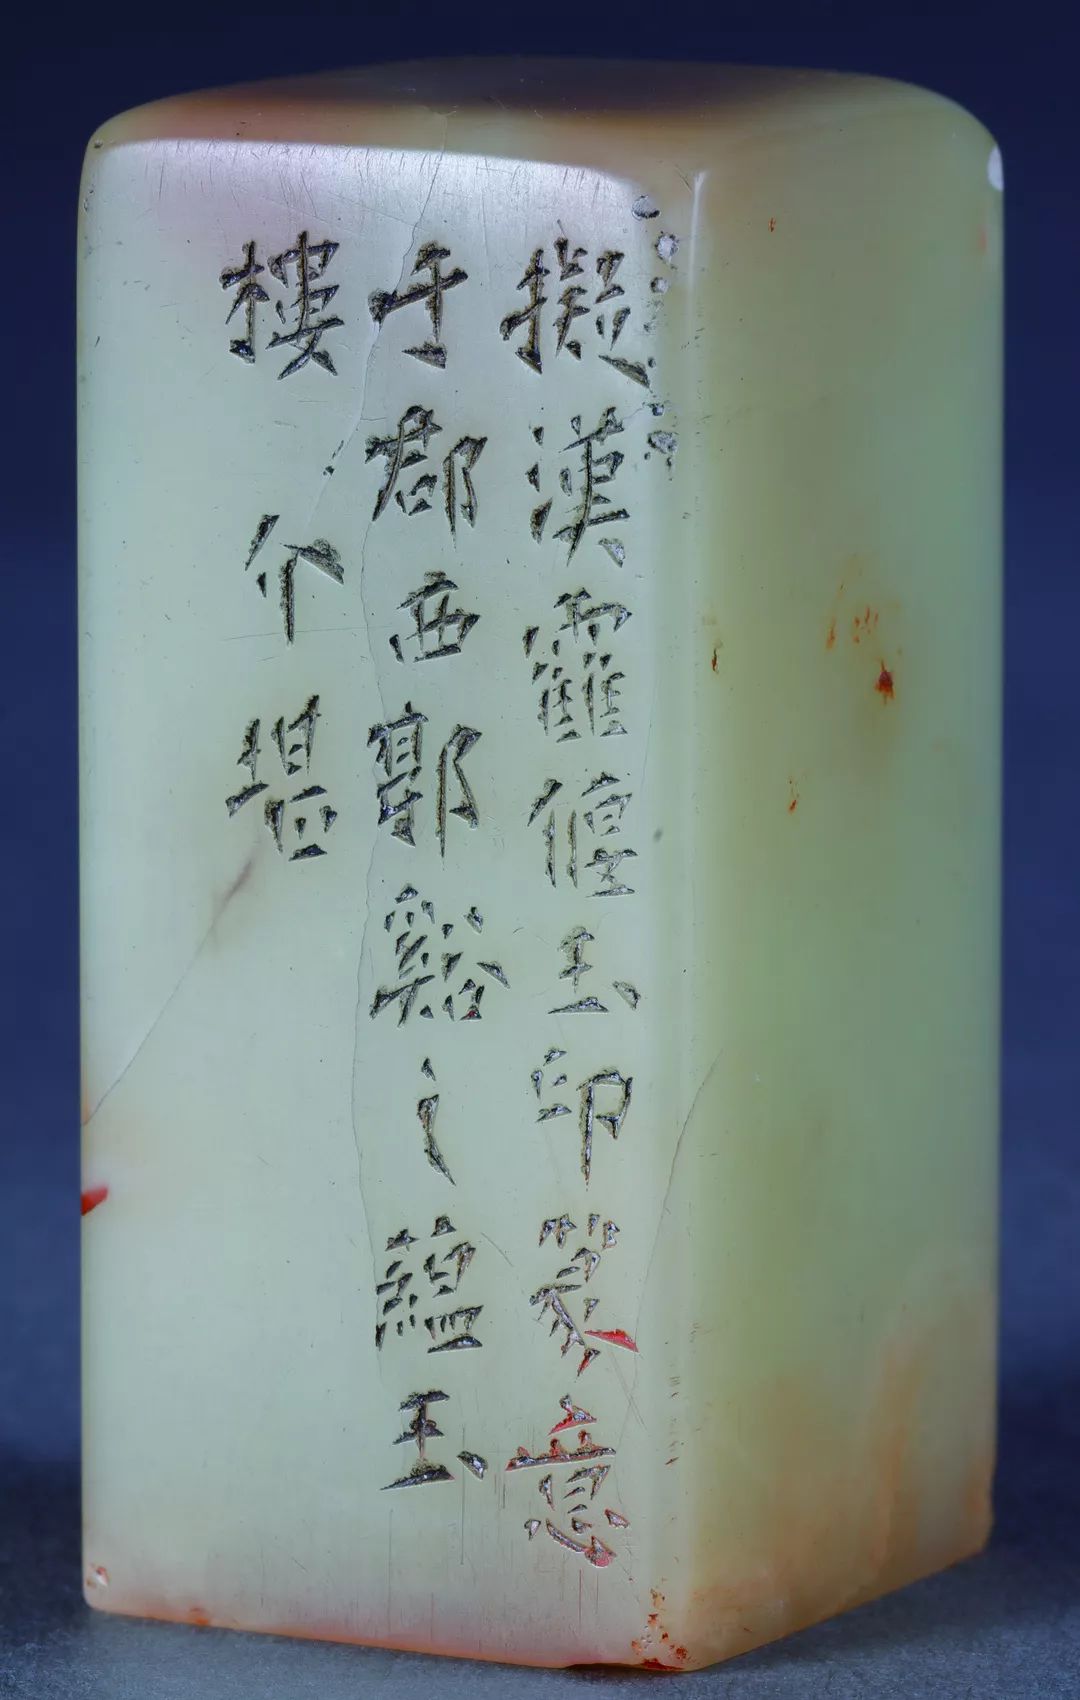 擬漢靃優玉印篆意
于郡西郭谿之蘊玉
樓介堪